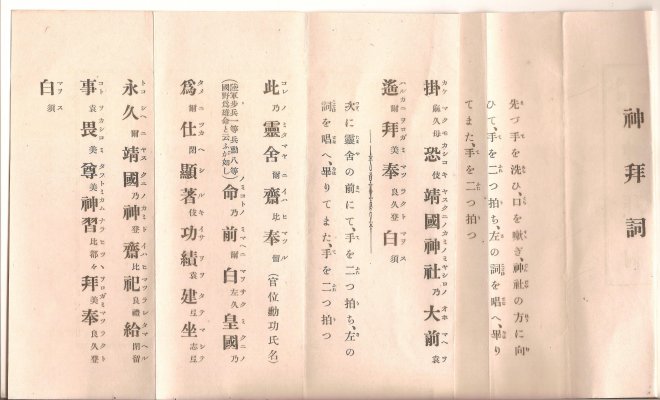 神拜詞
先づ手を洗ひ、口を嗽ぎ、神社の方に向
ひて、手を二つ拍ち、左の詞を唱へ、畢り
てまた、手を二つ拍つ
掛麻久母恐伎靖國神社乃大前袁
遙爾拜美奉良久登白須
次に靈舍の前にて、手を二つ拍ち、左の
詞を唱へ、畢りてまた、手を二つ拍つ
此乃靈舍爾齋比奉留（官位勳功氏名）
（陸軍步兵一等兵勳八等
國野爲雄命と云ふが如し）命乃前爾白左久皇國乃
爲爾仕閉顯著伎功績袁建弖坐志弖
永久爾靖國乃神登齋比祀良禮給閉留
事袁畏美尊美神習比都々拜美奉良久登
白須